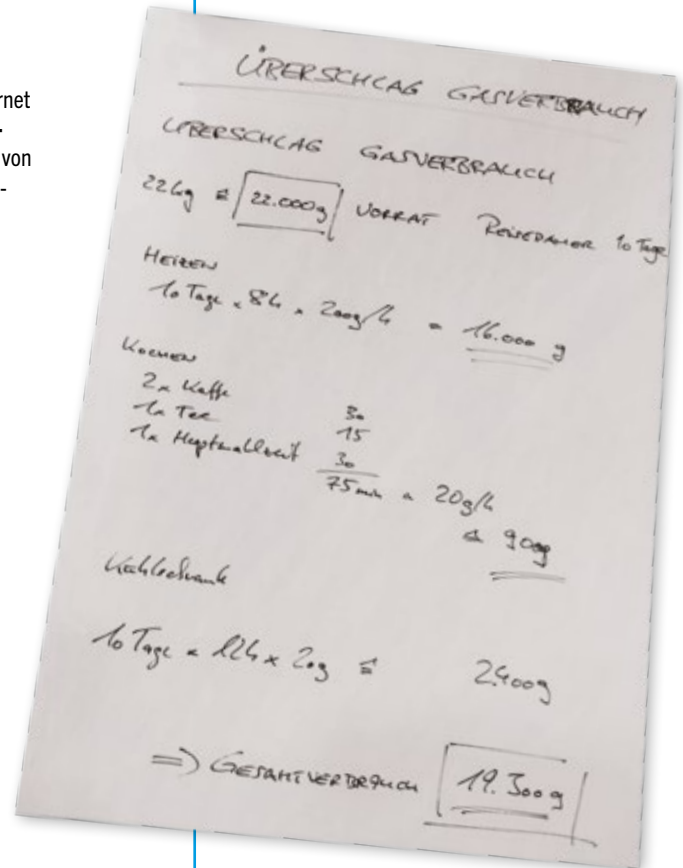 rnet
-
von
-
ÜBERSCHLAG GASVERBRAUCH
ÜBERSCHLAG GASVERBRAUCH
22kg ≙ 22.000g VORRAT REISEDAUER 10 Tage
HEIZEN
10 Tage x 8h x 200g/h = 16.000 g
KOCHEN
2x Kaffe 30
1x Tee 15
1x Hauptmahlzeit 30
75min x 20g/h
≙ 900g
Kühlschrank
10 Tage x 12h x 20g ≙ 2.400g
=> GESAMTVERBRAUCH 19.300g